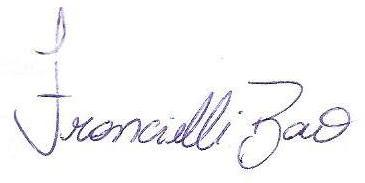 Francielli Bao